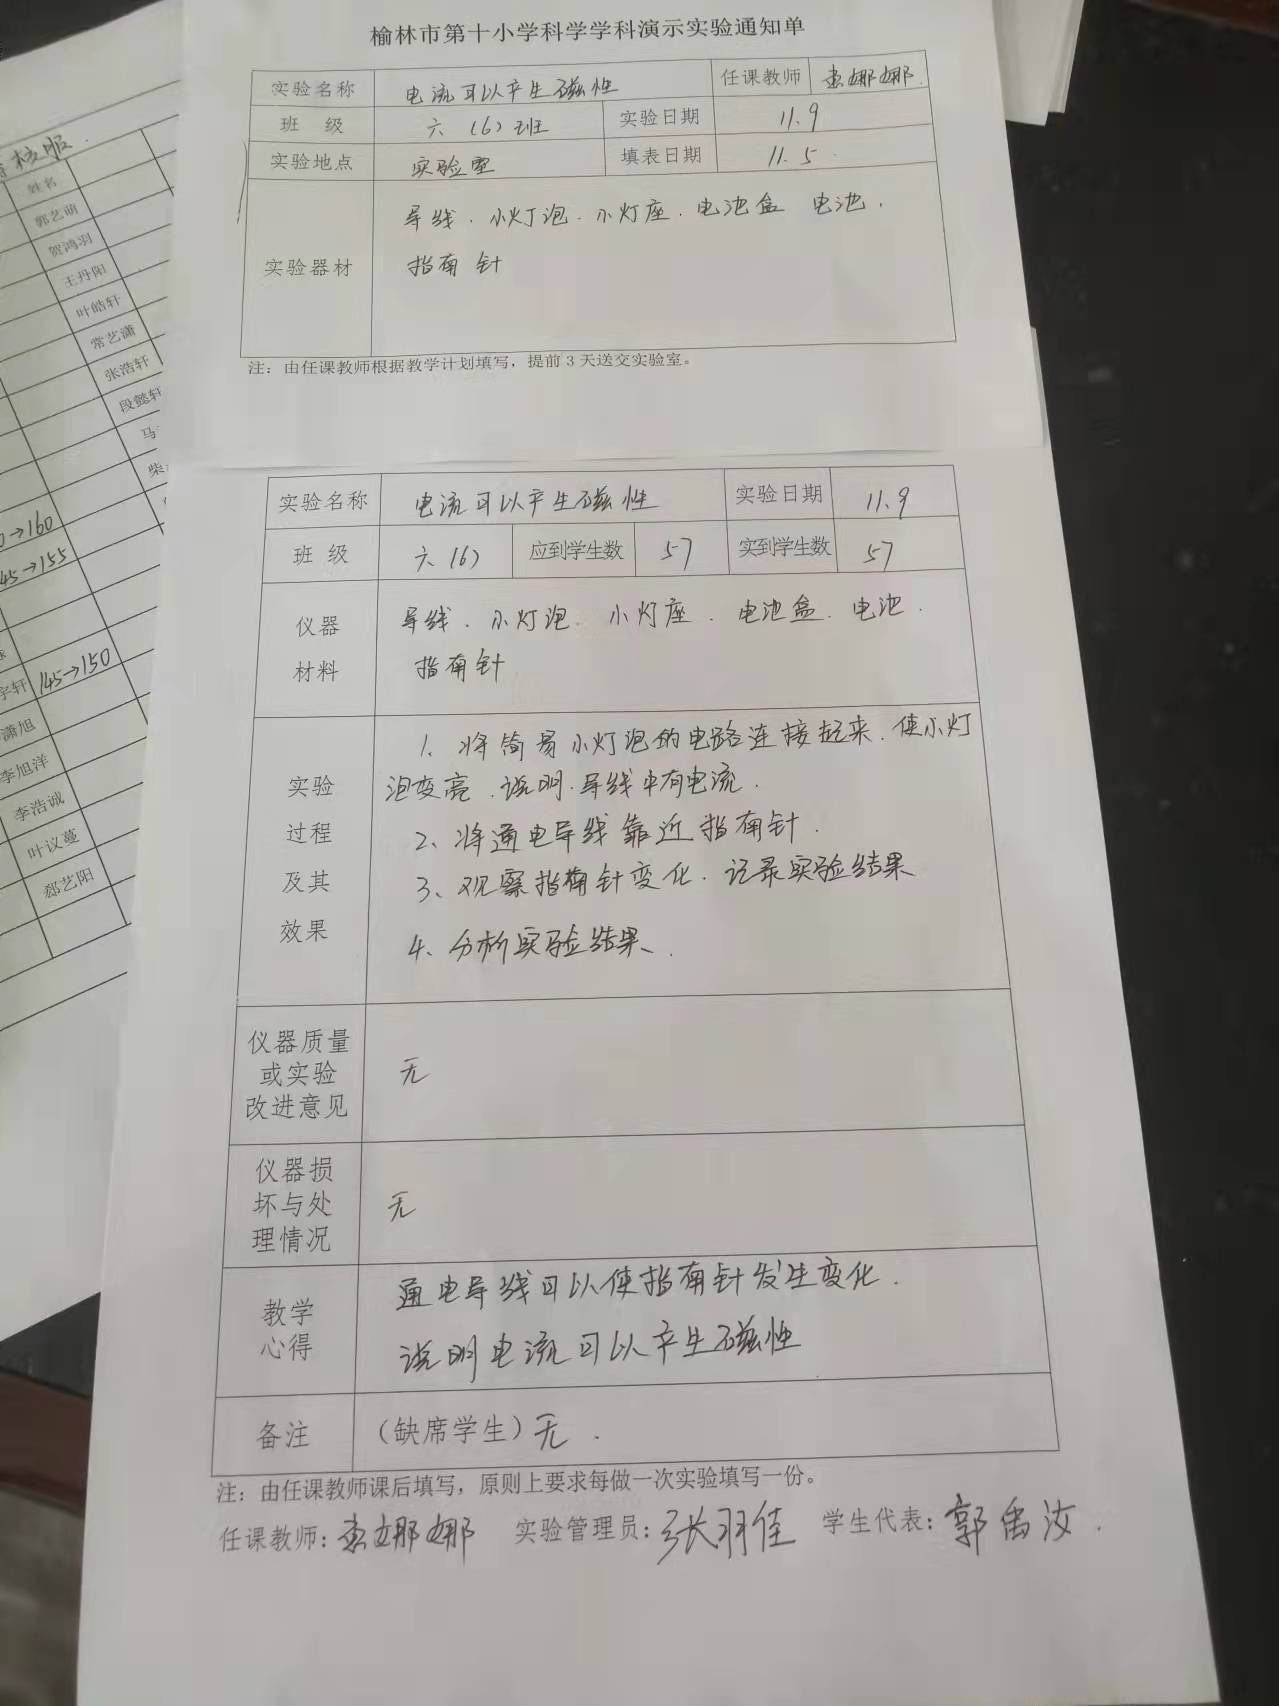 榆林市第十小学科学学科演示实验通知单
实验名称 电流可以产生磁性 任课教师 袁娜娜
班 级 六(6)班 实验日期 11.9
实验地点 实验室 填表日期 11.5
实验器材 导线．小灯泡．小灯座．电池盒 电池．
指南针
注：由任课教师根据教学计划填写，提前3天送交实验室。
实验名称 电流可以产生磁性 实验日期 11.9
班 级 六(6) 应到学生数 57 实到学生数 57
仪器 导线．小灯泡．小灯座．电池盒．电池．
材料 指南针
实验过程及其效果
1、将简易小灯泡的电路连接起来．使小灯
泡变亮．说明．导线中有电流．
2、将通电导线靠近指南针．
3、观察指南针变化．记录实验结果
4、分析实验结果、
仪器质量
或实验
改进意见
无
仪器损
坏与处
理情况
无
教学
心得
通电导线可以使指南针发生变化．
说明电流可以产生磁性
备注 (缺席学生)无．
注：由任课教师课后填写，原则上要求每做一次实验填写一份。
任课教师：袁娜娜 实验管理员：张羽佳 学生代表：郭禹汝．
校服．
姓名
郭艺萌
贺鸿羽
王丹阳
叶皓轩
常艺潇
张浩轩
段懿轩
马
柴
→160
45→155
宇轩 145→150
潇旭
李旭洋
李浩诚
叶议蔓
郄艺阳